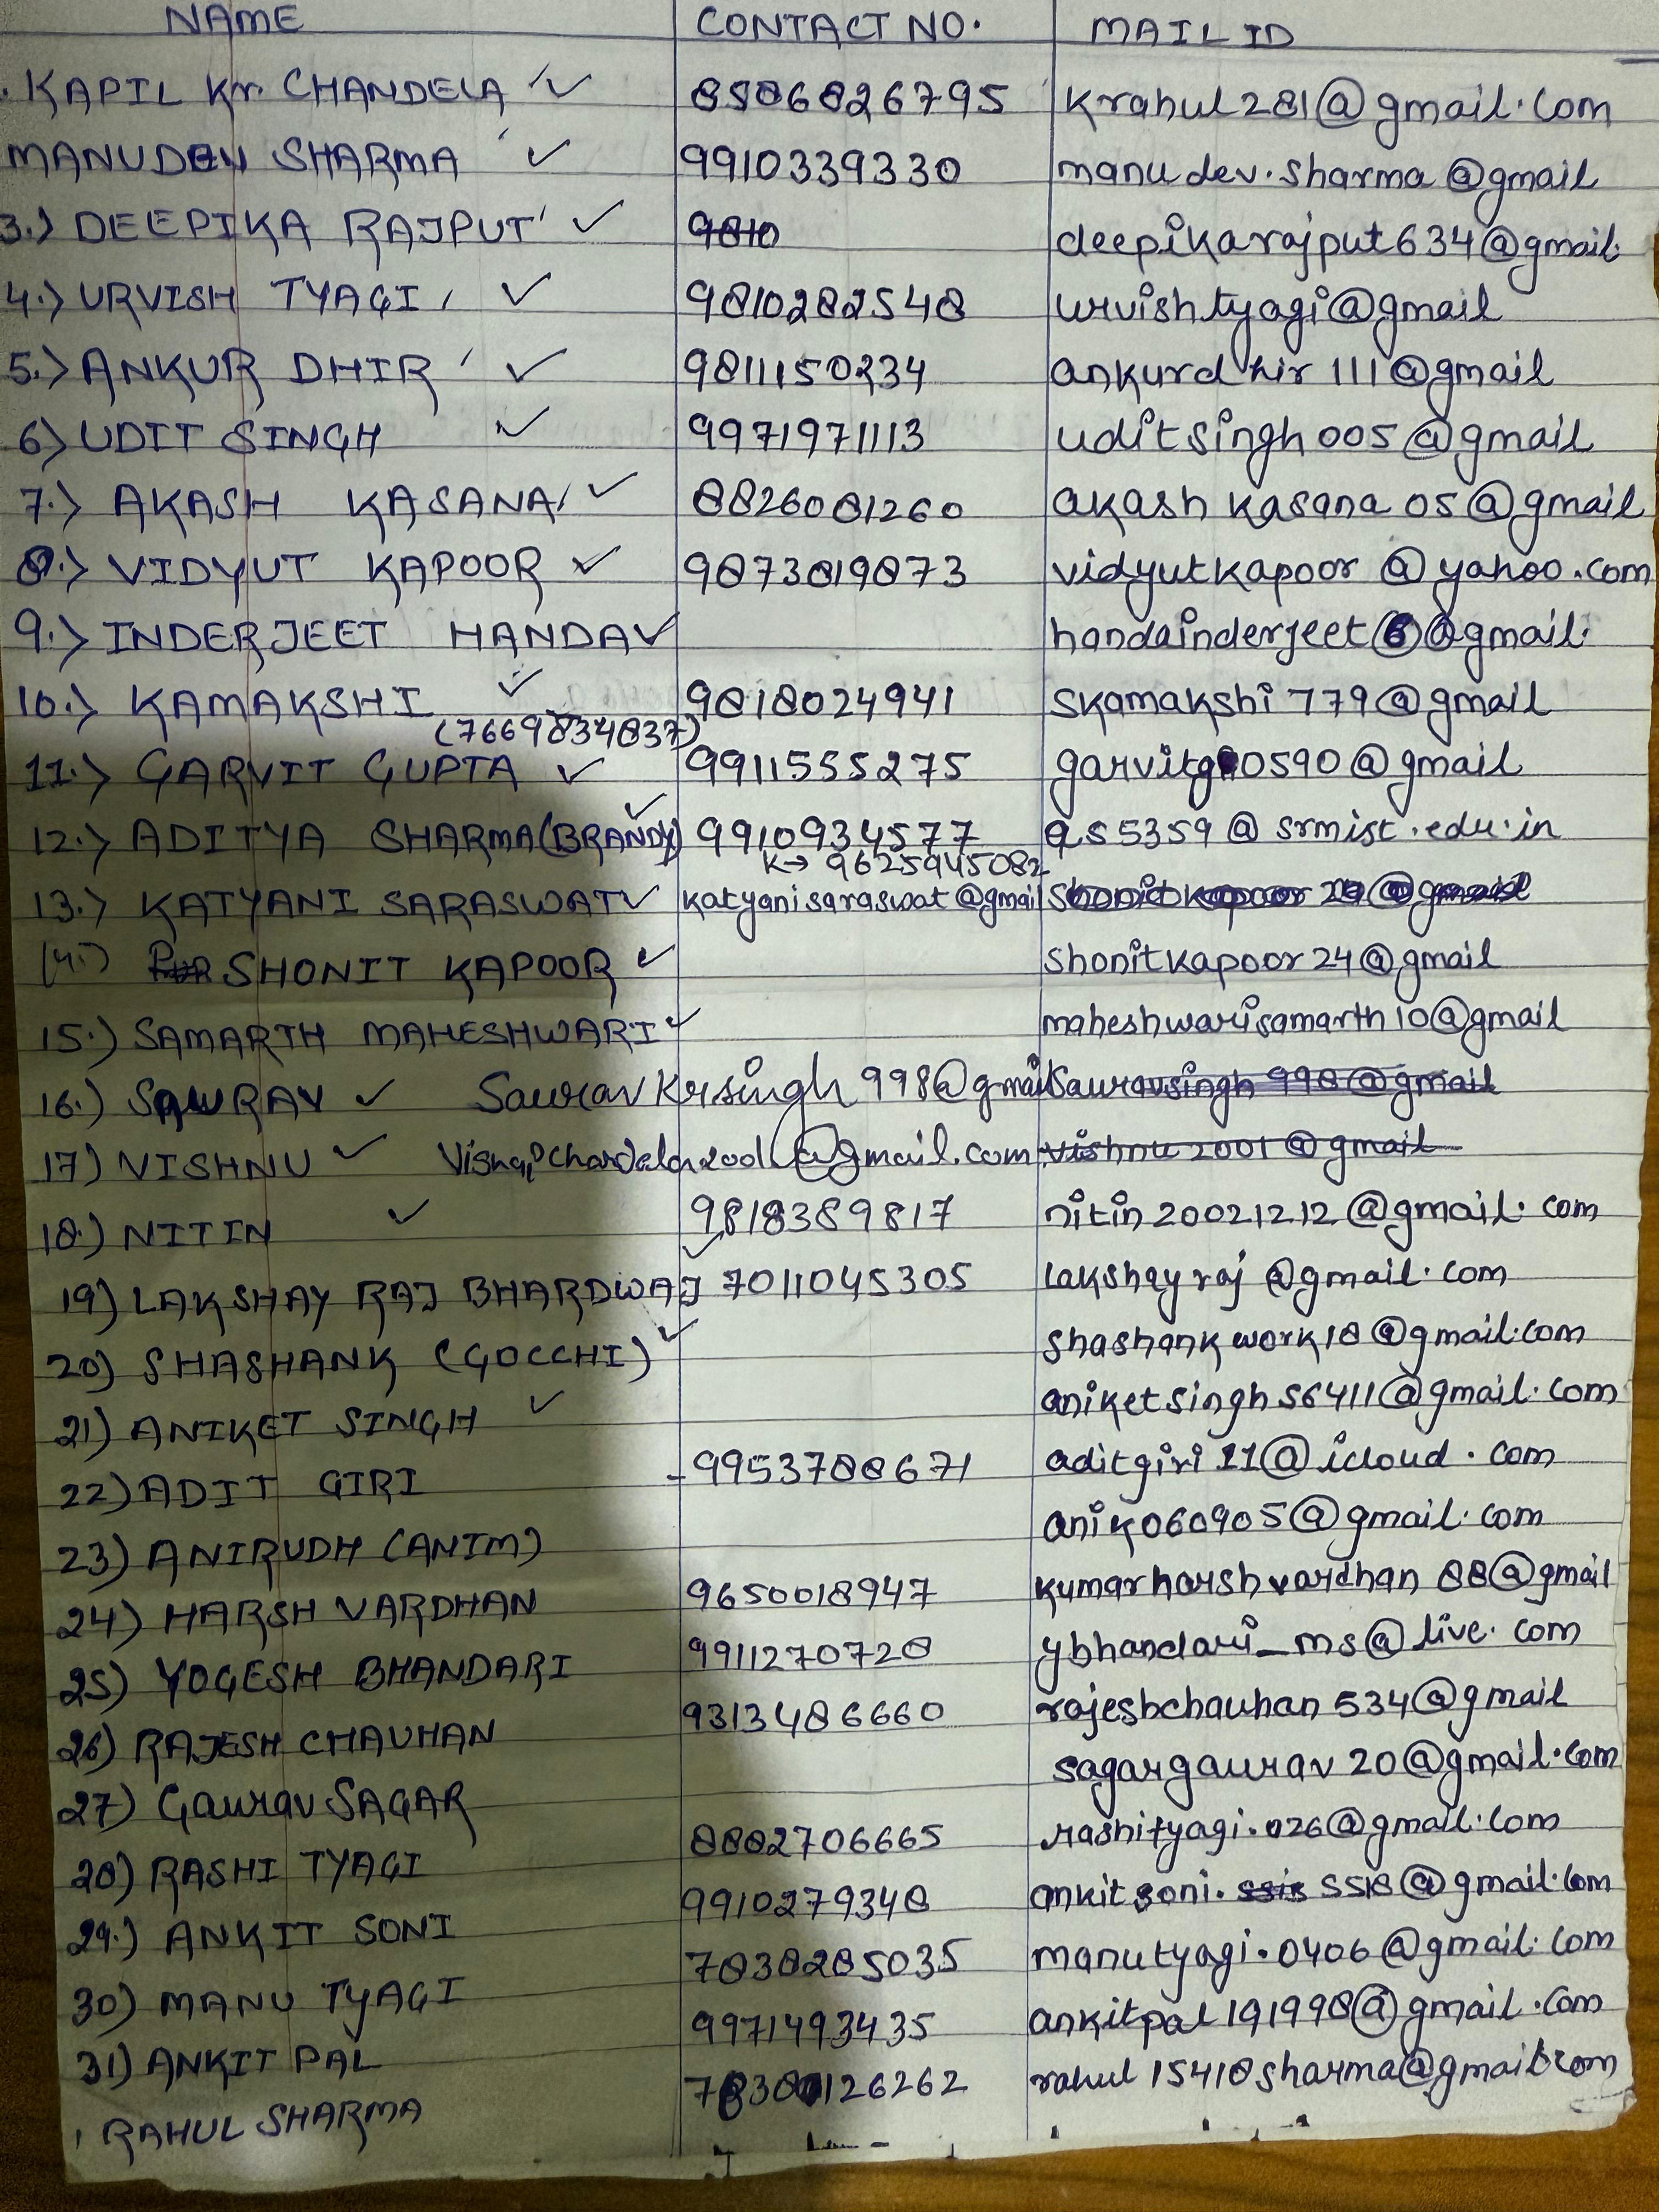 NAME CONTACT NO. MAIL ID
KAPIL Kr. CHANDELA 8586826795 krahul281@gmail.com
MANUDEV SHARMA 9910339330 manudev.sharma@gmail
3.) DEEPIKA RAJPUT 9810 deepikarajput634@gmail.
4.) URVISH TYAGI 9810282548 urvishtyagi@gmail
5.) ANKUR DHIR 9811150234 ankurdhir111@gmail
6) UDIT SINGH 9971971113 uditsingh005@gmail
7.) AKASH KASANA 8826081260 akash kasana 05@gmail
8.) VIDYUT KAPOOR 9873819873 vidyutkapoor@yahoo.com
9.) INDERJEET HANDA handainderjeet6@gmail.
10.) KAMAKSHI 9818024941 skamakshi779@gmail
(7669834837)
11.) GARVIT GUPTA 9911555275 @gmail
12.) ADITYA SHARMA (BRANDY) 9910934577 as5359@srmist.edu.in
K→ 9625945082
13.) KATYANI SARASWAT katyanisaraswat@gmail Shonitkapoor @gmail
14.) SHONIT KAPOOR Shonitkapoor24@gmail
15.) SAMARTH MAHESHWARI maheshwarisamarth10@gmail
16.) SAURAV SauravKrsingh998@gmail Sauravsingh998@gmail
17) VISHNU @gmail.com vishnu2001@gmail
18.) NITIN 9818389817 nitin20021212@gmail.com
19) LAKSHAY RAJ BHARDWAJ 7011045305 lakshayraj@gmail.com
20) SHASHANK (GOCCHI) shashankwork18@gmail.com
21) ANIKET SINGH aniketsinghs6411@gmail.com
22) ADIT GIRI -9953788671 aditgiri11@icloud.com
23) ANIRUDH (ANIM) anik060905@gmail.com
24) HARSH VARDHAN 9650018947 kumarharshvardhan88@gmail
25) YOGESH BHANDARI 9911270728 ybhandari_ms@live.com
26) RAJESH CHAUHAN 9313486660 rajeshchauhan534@gmail
27) Gaurav SAGAR sagargaurav20@gmail.com
28) RASHI TYAGI 8882706665 rashityagi.026@gmail.com
29.) ANKIT SONI 9910279348 ankitsoni. ssis ss18@gmail.com
30) MANU TYAGI 7838285035 manutyagi.0406@gmail.com
31) ANKIT PAL 9971493435 ankitpal191998@gmail.com
RAHUL SHARMA rahul15418sharma@gmail.com